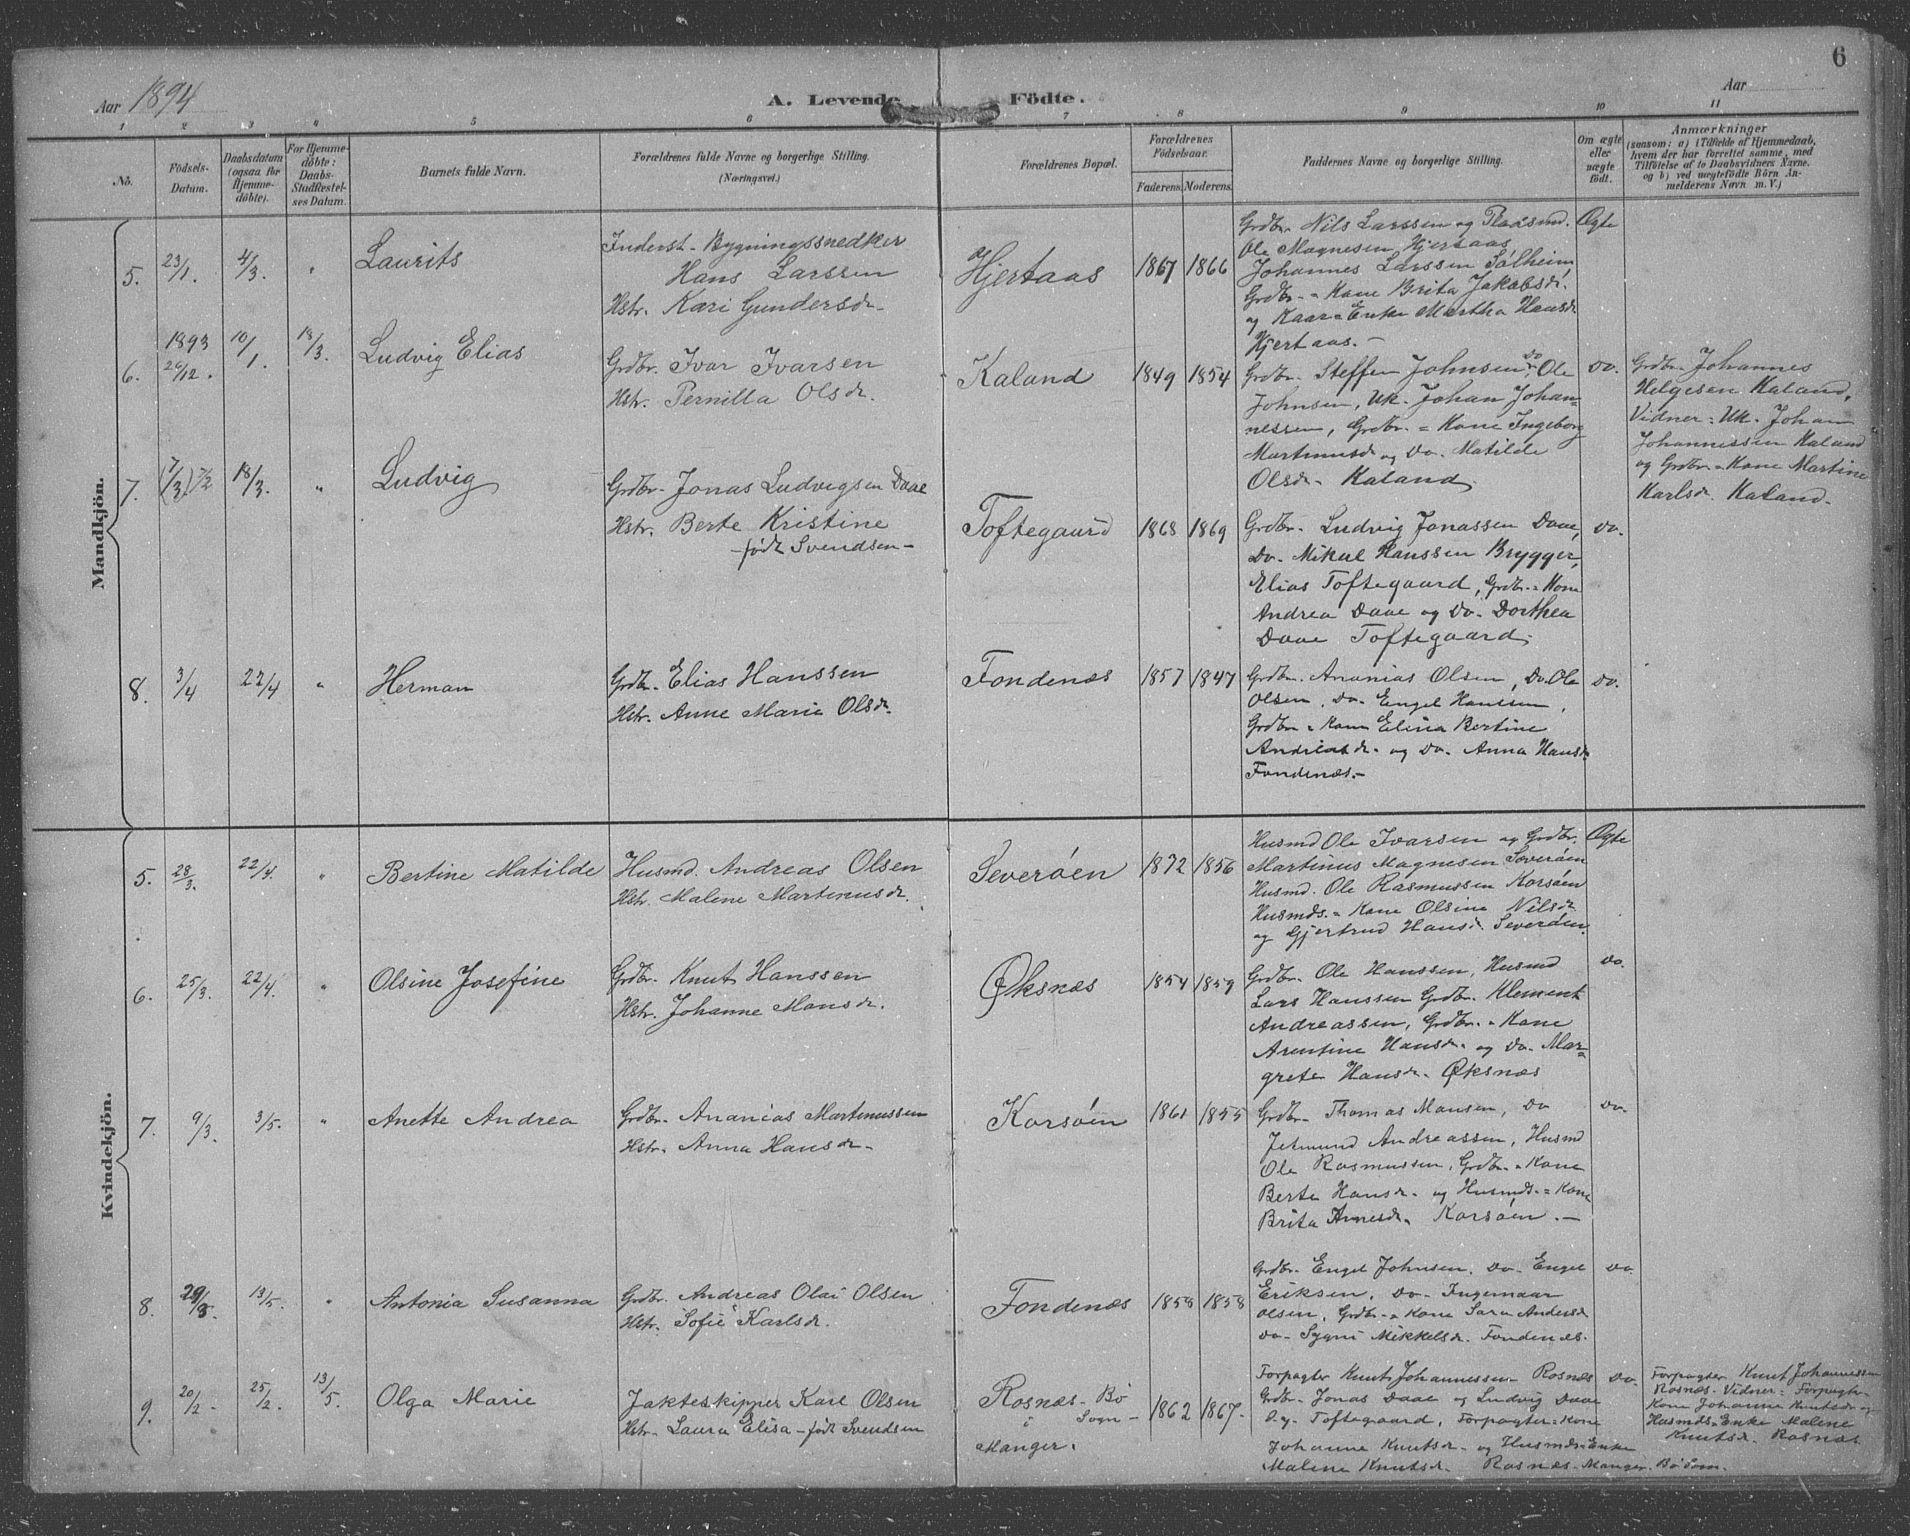 6
Aar 1894
A. Levende Födte.
Aar
1 2 3 4 5 6 7 8 9 10 11
No.
Födsels-Datum.
Daabsdatum (ogsaa for Hjemmedöbte).
For Hjemmedöbte: Daabs-Stadfæstelses Datum.
Barnets fulde Navn.
Forældrenes fulde Navne og borgerlige Stilling.
(Næringsvei.)
Forældrenes Bopæl.
Forældrenes Födselsaar.
Faderens. Moderens.
Faddernes Navne og borgerlige Stilling.
Om ægte eller uægte födt.
Anmærkninger
(saasom: a) i Tilfælde af Hjemmedaab, hvem der har forrettet samme, med Tilföielse af to Daabsvidners Navne. og b) ved uægtefödte Börn Anmelderens Navn m. V.)
Mandkjön.
5. 23/1. 4/3. " Laurits
Inderst - Bygningssnedker
Hans Larssen
Hstr. Kari Gundersdr.
Hjertaas 1867 1866
Grdbr. Nils Larssen og Pladsmd.
Ole Magnesen Hjertaas,
Johannes Larssen Solheim,
Grdbr.-Kone Brita Jakobsdr.
og Kaar-Enke Martha Hansdr
Hjertaas.-
Ægte
6. 1893 26/12. 10/1. 18/3. Ludvig Elias
Grdbr. Ivar Ivarsen
Hstr. Pernilla Olsdr.
Kaland 1849 1854
Grdbr. Steffen Johnsen, Do Ole
Johnsen, Uk. Johan Johan-
nessen, Grdbr.-Kone Ingeborg
Martinusdr og Do. Matilde
Olsdr. Kaland.
Do.
Grdbr. Johannes
Helgesen Kaland,
Vidner: Uk. Johan
Johannessen Kaland
og Grdbr.-Kone Martine
Karlsdr. Kaland.
7. (7/3) 7/2 18/3. " Ludvig
Grdbr. Jonas Ludvigsen Daae
Hstr. Berte Kristine
-født Svendsen-
Toftegaard 1868 1869
Grdbr. Ludvig Jonassen Daae,
Do. Mikal Hanssen Brygger,
Elias Toftegaard, Grdbr.-Kone
Andrea Daae og Do. Dorthea
Daae Toftegaard.
Do.
8. 3/4 22/4 " Herman
Grdbr. Elias Hanssen
Hstr. Anne Marie Olsdr.
Fondenæs 1857 1847
Grdbr. Ananias Olsen, Do. Ole
Olsen, Do. Engel Hanssen,
Grdbr.-Kone Elina Bertine
Andreasdr. og Do. Anna Hansdr
Fondenæs.-
Do.
Kvindekjön.
5. 28/3. 22/4. " Bertine Matilde
Husmd. Andreas Olsen
Hstr. Malene Martinusdr.
Severøen 1872 1856
Husmd Ole Ivarsen og Grdbr.
Martinus Magnesen Sæverøen
Husmd. Ole Rasmussen Korsøen
Husmds.-Kone Olsine Nilsdr
og Gjertrud Hansdr. Severøen.
Ægte
6. 25/3. 22/4. " Olsine Josefine
Grdbr. Knut Hanssen
Hstr. Johanne Monsdr.
Øksnæs 1854 1859
Grdbr. Ole Hanssen, Husmd
Lars Hanssen Grdbr. Klement
Andreassen, Grdbr.-Kone
Arentine Hansdr. og Do. Mar-
grete Hansdr. Øksnæs
Do.
7. 9/3. 3/5. " Anette Andrea
Grdbr. Ananias Martinussen
Hstr. Anna Hansdr.-
Korsøen 1861 1855
Grdbr. Thomas Monsen, Do
Jetmund Andreassen, Husmd
Ole Rasmussen, Grdbr.-Kone
Berte Hansdr. og Husmds.-Kone
Brita Arnesdr. Korsøen.-
Do.
8. 29/3. 13/5. " Antonia Susanna
Grdbr. Andreas Olai Olsen
Hstr. Sofie Karlsdr.
Fondenæs 1858 1858
Grdbr. Engel Johnsen. Do. Engel
Eriksen, Do. Ingemaar
Olsen, Grdbr.-Kone Sara Andersdr
Do. Sygni Mikkelsdr. Fondenæs.
Do.
9. 20/2. 25/2. 13/5. Olga Marie
Jakteskipper Karl Olsen
Hstr. Laura Elisa - født Svendsen
Rosnæs - Bø
Sogn -
i
Manger.
1862 1867.
Forpagter Knut Johannessen Rosnæs
Grdbr. Jonas Daae og Ludvig Daae
Toftegaard, Forpagter-Kone
Johanne Knutsdr. og Husmds-Enke
Malene Knutsdr. Rosnæs. Manger. Bø Sogn.
Do.
Forpagter Knut Johannessen
Rosnæs. Vidner: Forpagter
Kone Johanne Knutsdr og
Husmds.Enke Malene
Knutsdr. Rosnæs.